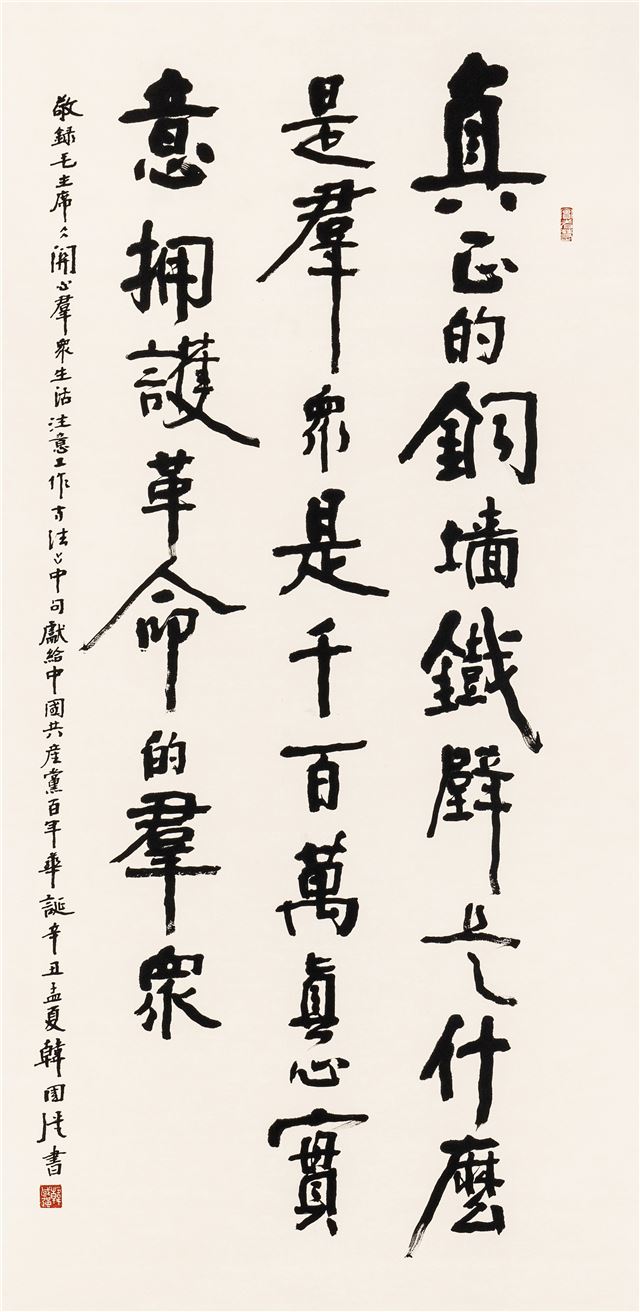 真正的銅墙鐵壁是什麽
是羣衆是千百萬真心實
意拥護革命的羣衆
敬録毛主席《関心羣衆生活注意工作方法》中句獻給中國共産黨百年華誕辛丑孟夏韓國書